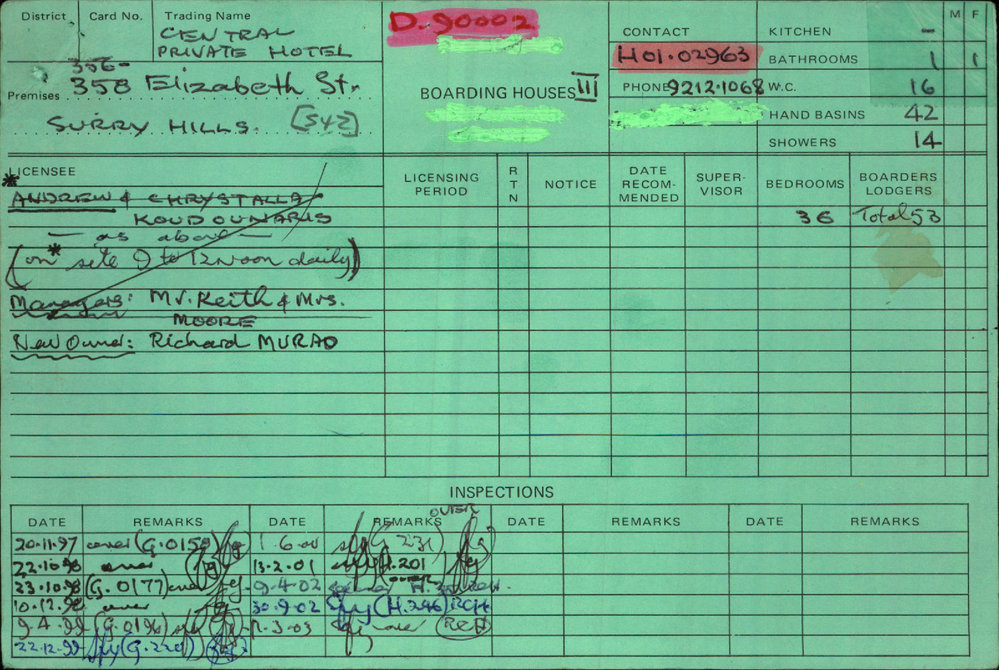 District
Card No.
Trading Name
CENTRAL
PRIVATE HOTEL
Premises
356-
358 Elizabeth St.
SURRY HILLS. [542]
D.90002
BOARDING HOUSES III
CONTACT
H01.02963
PHONE 9212.1068
M F
KITCHEN -
BATHROOMS 1 1
W.C. 16
HAND BASINS 42
SHOWERS 14
LICENSEE
LICENSING PERIOD
RTN
NOTICE
DATE RECOM-MENDED
SUPER-VISOR
BEDROOMS
BOARDERS LODGERS
* ANDREW & CHRYSTALLA
KOUDOUNARIS
36 Total 53
— as above —
(on * site 9 to 12 Noon daily)
Managers: Mr. Keith & Mrs.
MOORE
New Owner: Richard MURAD
INSPECTIONS
DATE REMARKS DATE REMARKS DATE REMARKS DATE REMARKS
OVER
20.11.97 over (G.0158) 1.6.00 (G 231)
22.10.98 over 13.2.01 H.201
23.10.98 (G.0177) over 9-4-02 over
10.12.98 over 30.9.02 (H.246) RCH
9.4.99 (G.0196) 3-03 over (RCH)
22.12.99